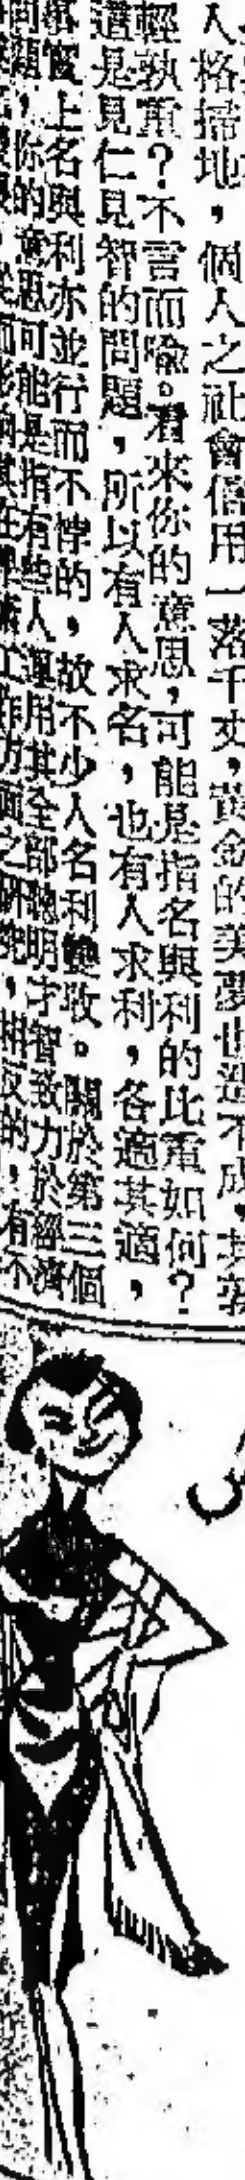 人格掃地，個人之社會信用一落千丈，黃金的美夢也造不成，其孰
輕孰重？不言而喻。看來你的意思，可能是指名與利的比重如何？
這是見仁見智的問題，所以有人求名，也有人求利，各適其適，
上名與利亦並行而不悖的，故不少人名利雙收。關於第三個
問題，你的意思可能是指有些人運用其全部聰明才智致力於經濟
工作方面之研究，相反的，有不